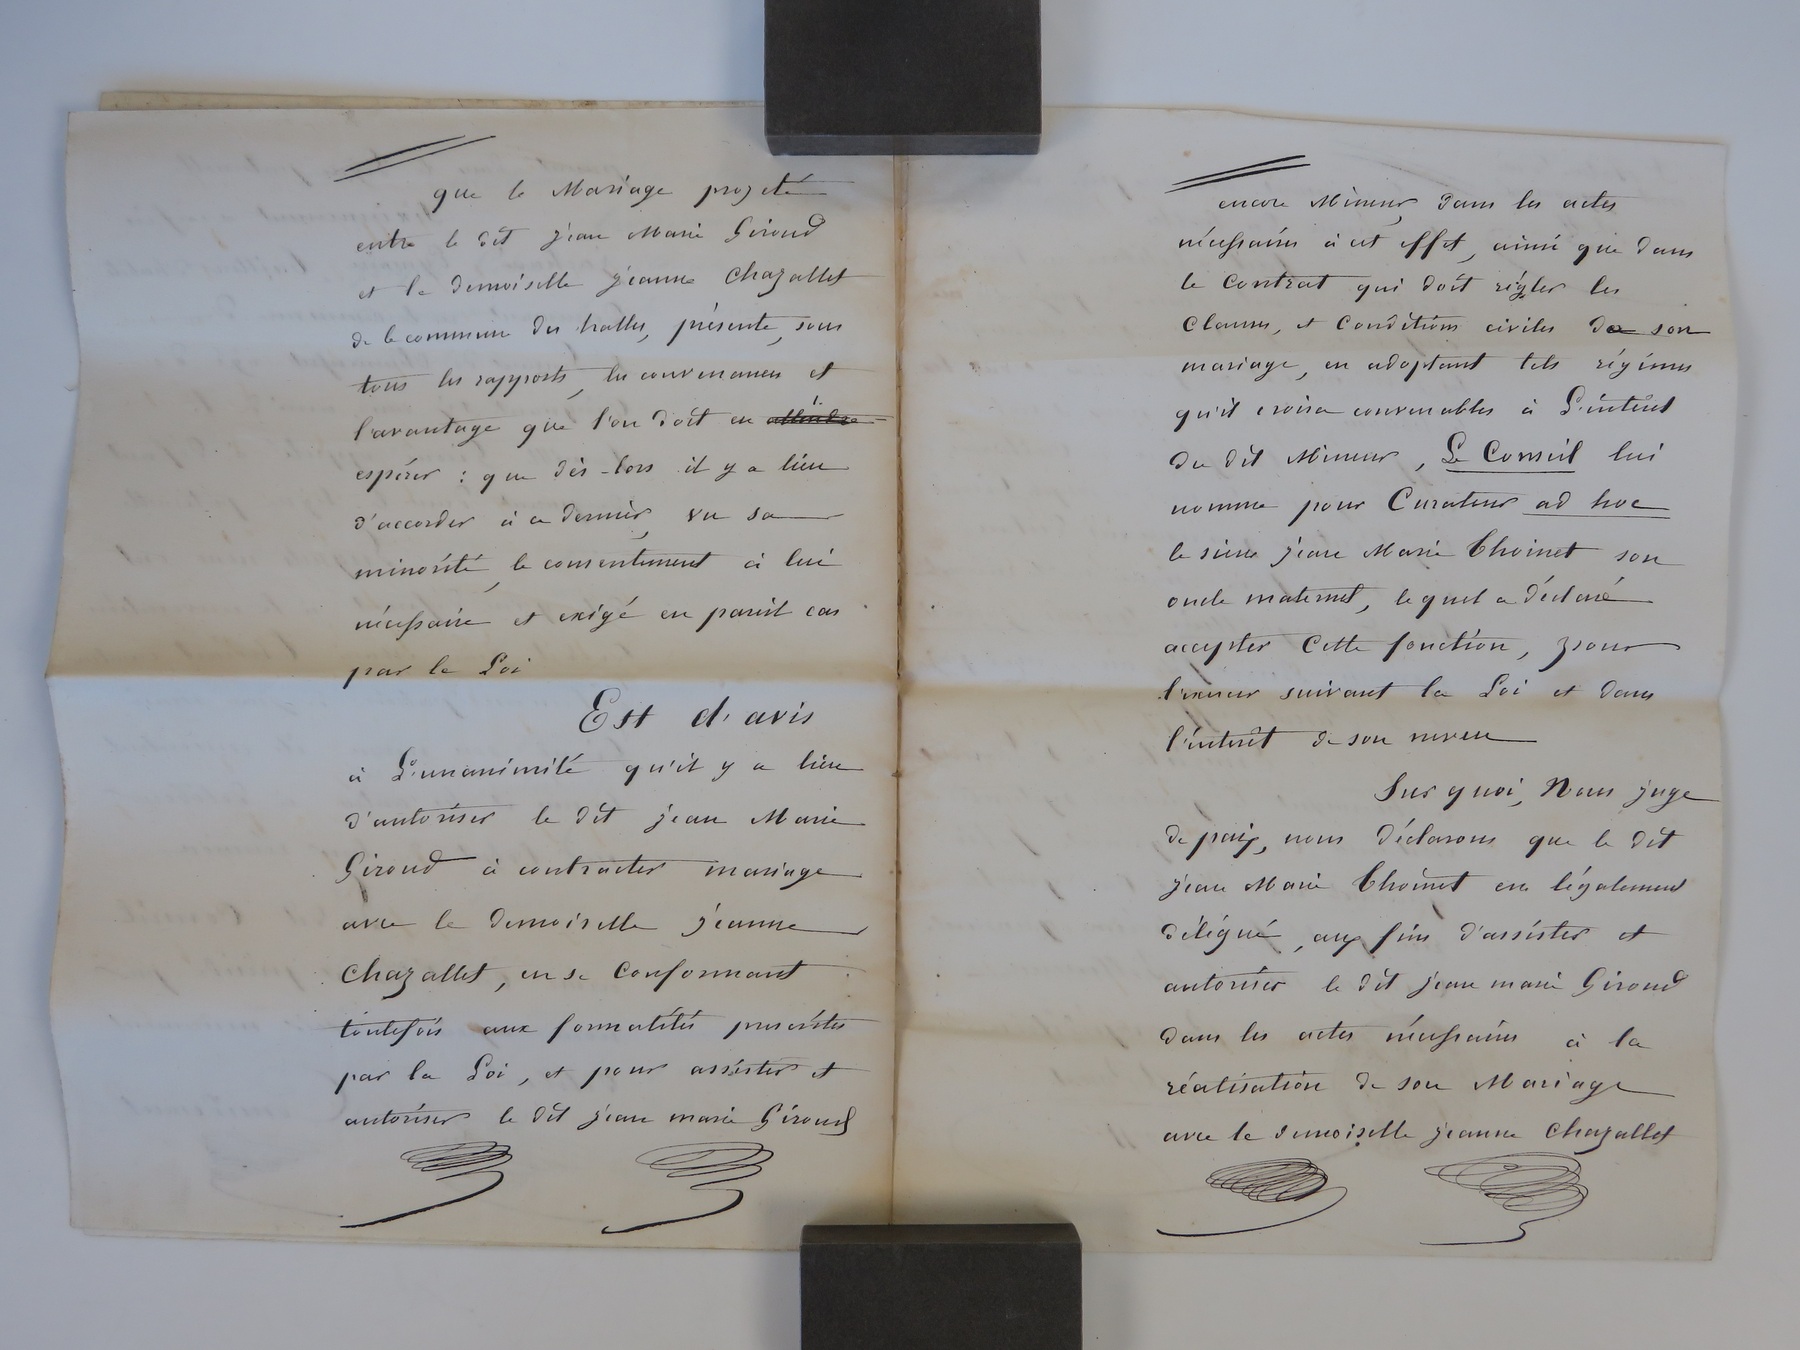 que le Mariage projeté
entre le dit jean Marie Giroud
et la demoiselle jeanne Chazallet
de la commune des halles, présente, sous
tous les rapports, les convenances et
l'avantage que l'on doit en
espérer : que dès-lors il y a lieu
d'accorder à ce dernier, vu sa
minorité, le consentement à lui
nécessaire et exigé en pareil cas
par la Loi
Est d'avis
à L'unanimité qu'il y a lieu
d'autoriser le dit jean Marie
Giroud à contracter mariage
avec la demoiselle jeanne
Chazallet, en se Conformant
toutefois aux formalités prescrites
par la Loi, et pour assister et
autoriser le dit jean marie Giroud
encore Mineur, dans les actes
nécessaires à cet effet, ainsi que dans
le Contrat qui doit régler les
Clauses, et Conditions civiles de son
mariage, en adoptant tels régimes
qu'il croira convenables à L'intérêt
du dit Mineur, Le Conseil lui
nomme pour Curateur ad hoc
le sieur jean Marie Thoinet son
oncle maternel, lequel a déclaré
accepter Cette fonction, pour
l'exercer suivant la Loi et dans
l'intérêt de son neveu
Sur quoi, Nous juge
de paix, nous déclarons que le dit
jean Marie Thoinet est légalement
délégué, aux fins d'assister et
autoriser le dit jean marie Giroud
dans les actes nécessaires à la
réalisation de son Mariage
avec la demoiselle jeanne Chazallet